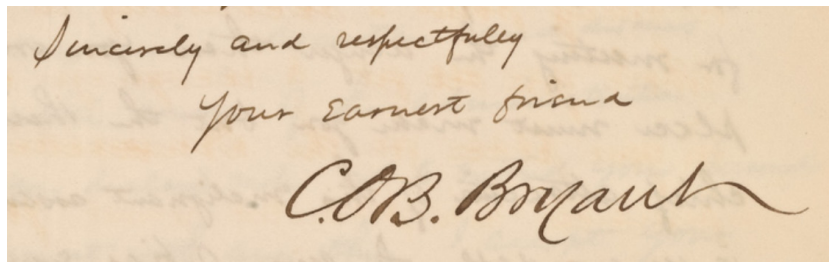 Sincerely and respectfully
Your Earnest friend
C.O.B. Bryant